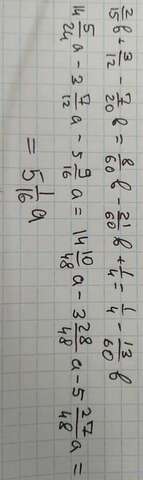 2/15 b + 3/12 - 7/20 b = 8/60 b - 21/60 b + 1/4 = 1/4 - 13/60 b
14 5/24 a - 3 7/12 a - 5 9/16 a = 14 10/48 a - 3 28/48 a - 5 27/48 a =
= 5 1/16 a